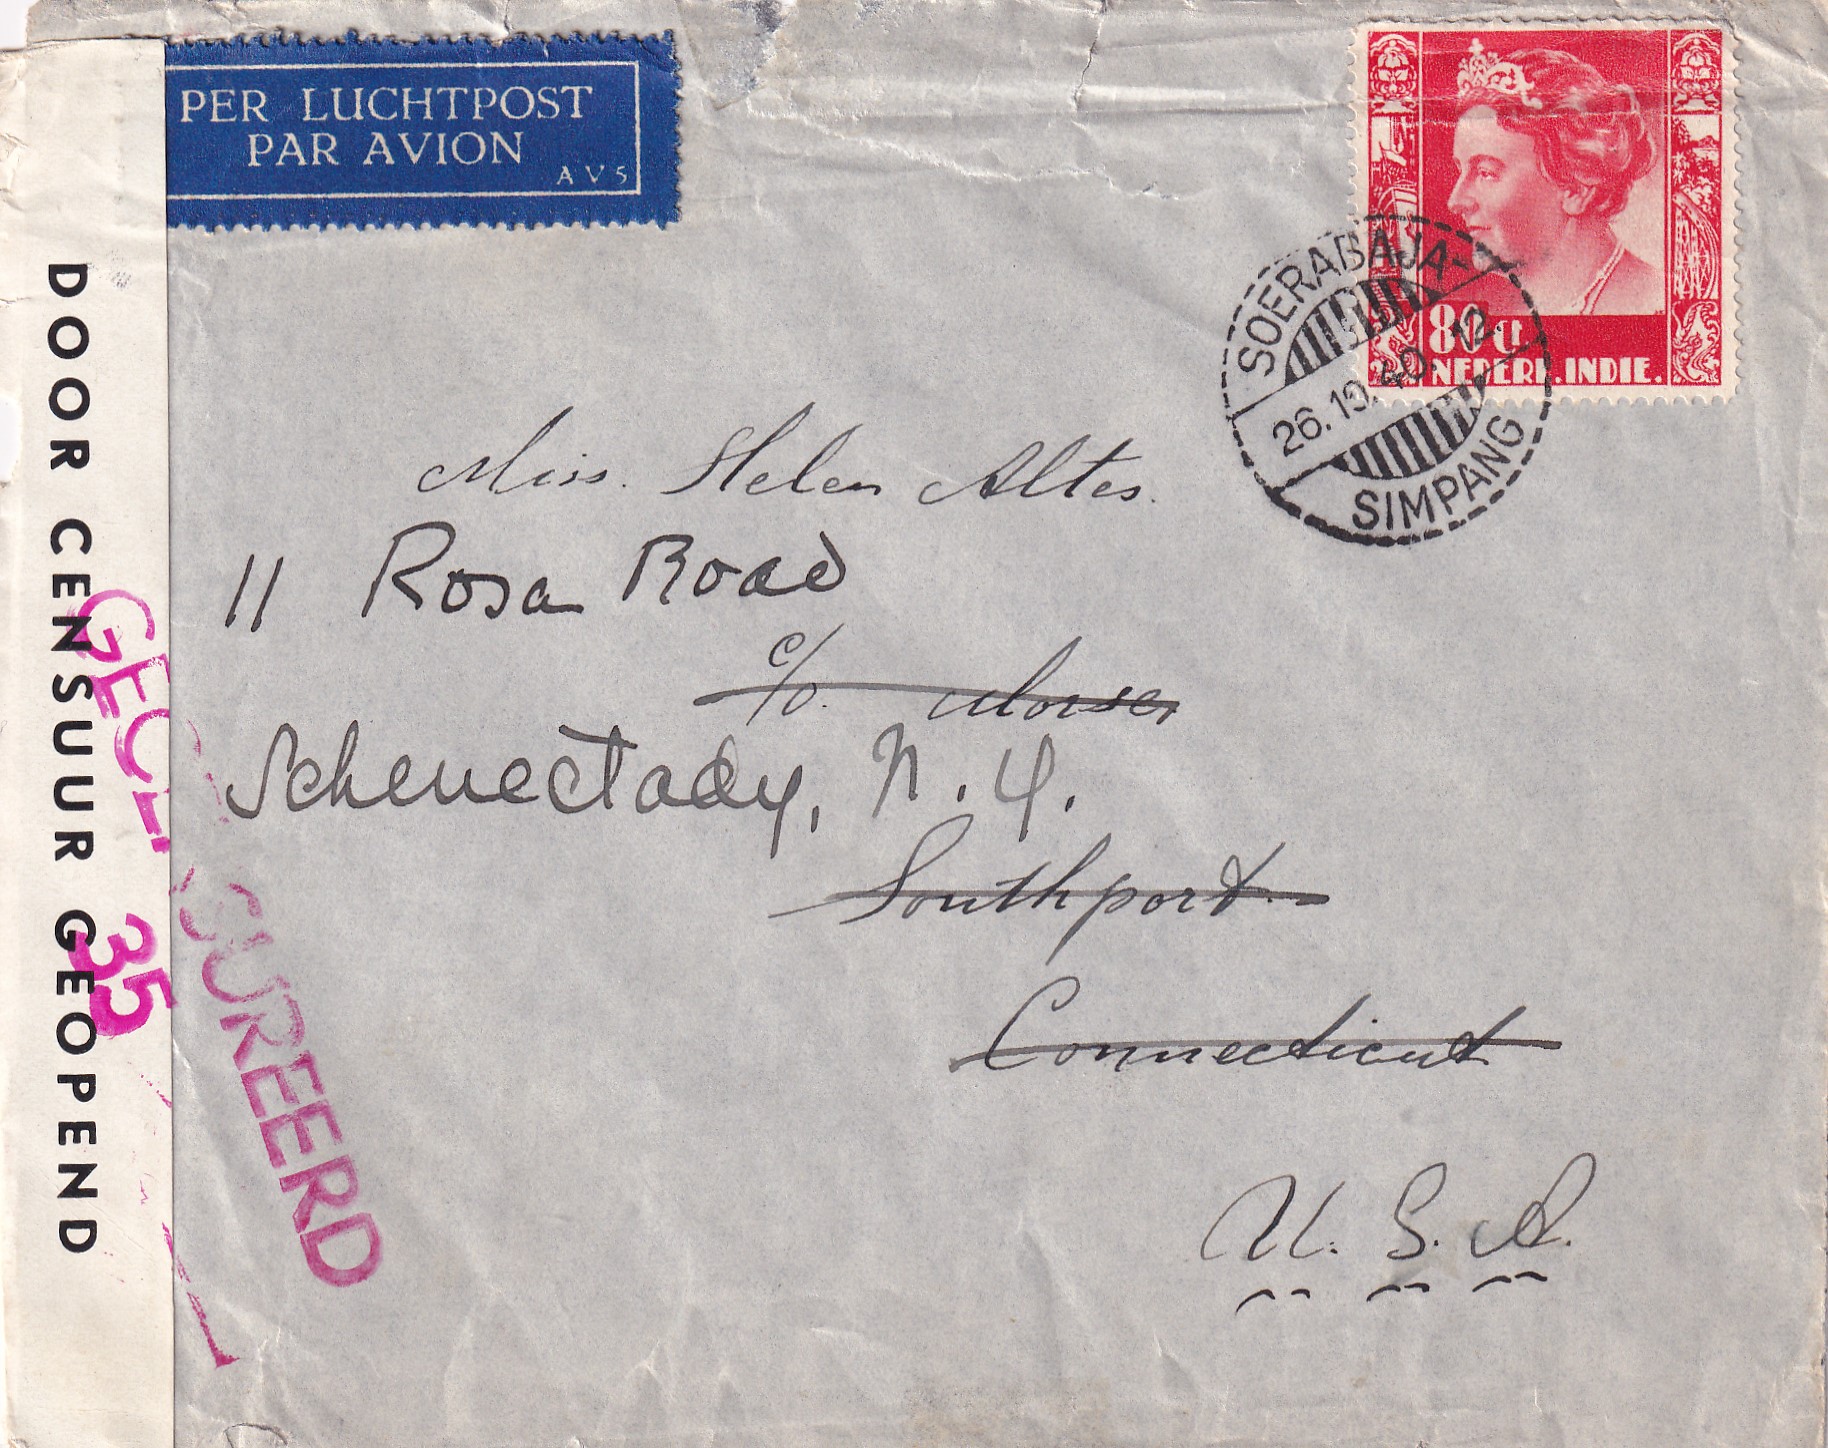 PER LUCHTPOST
PAR AVION
AV5
80 ct
NEDERL. INDIE.
SOERABAJA-
26.10.40. 12.
SIMPANG
DOOR CENSUUR GEOPEND
GECENSUREERD
35
Miss. Helen Altes.
11 Rosa Road
c/o. Morse,
Schenectady, N.Y.
Southport.
Connecticut
U.S.A.